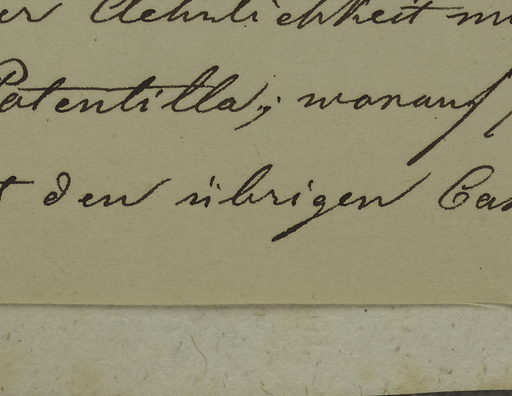 er Aehnlichkeit m
Potentilla; worauf
t den übrigen Ca